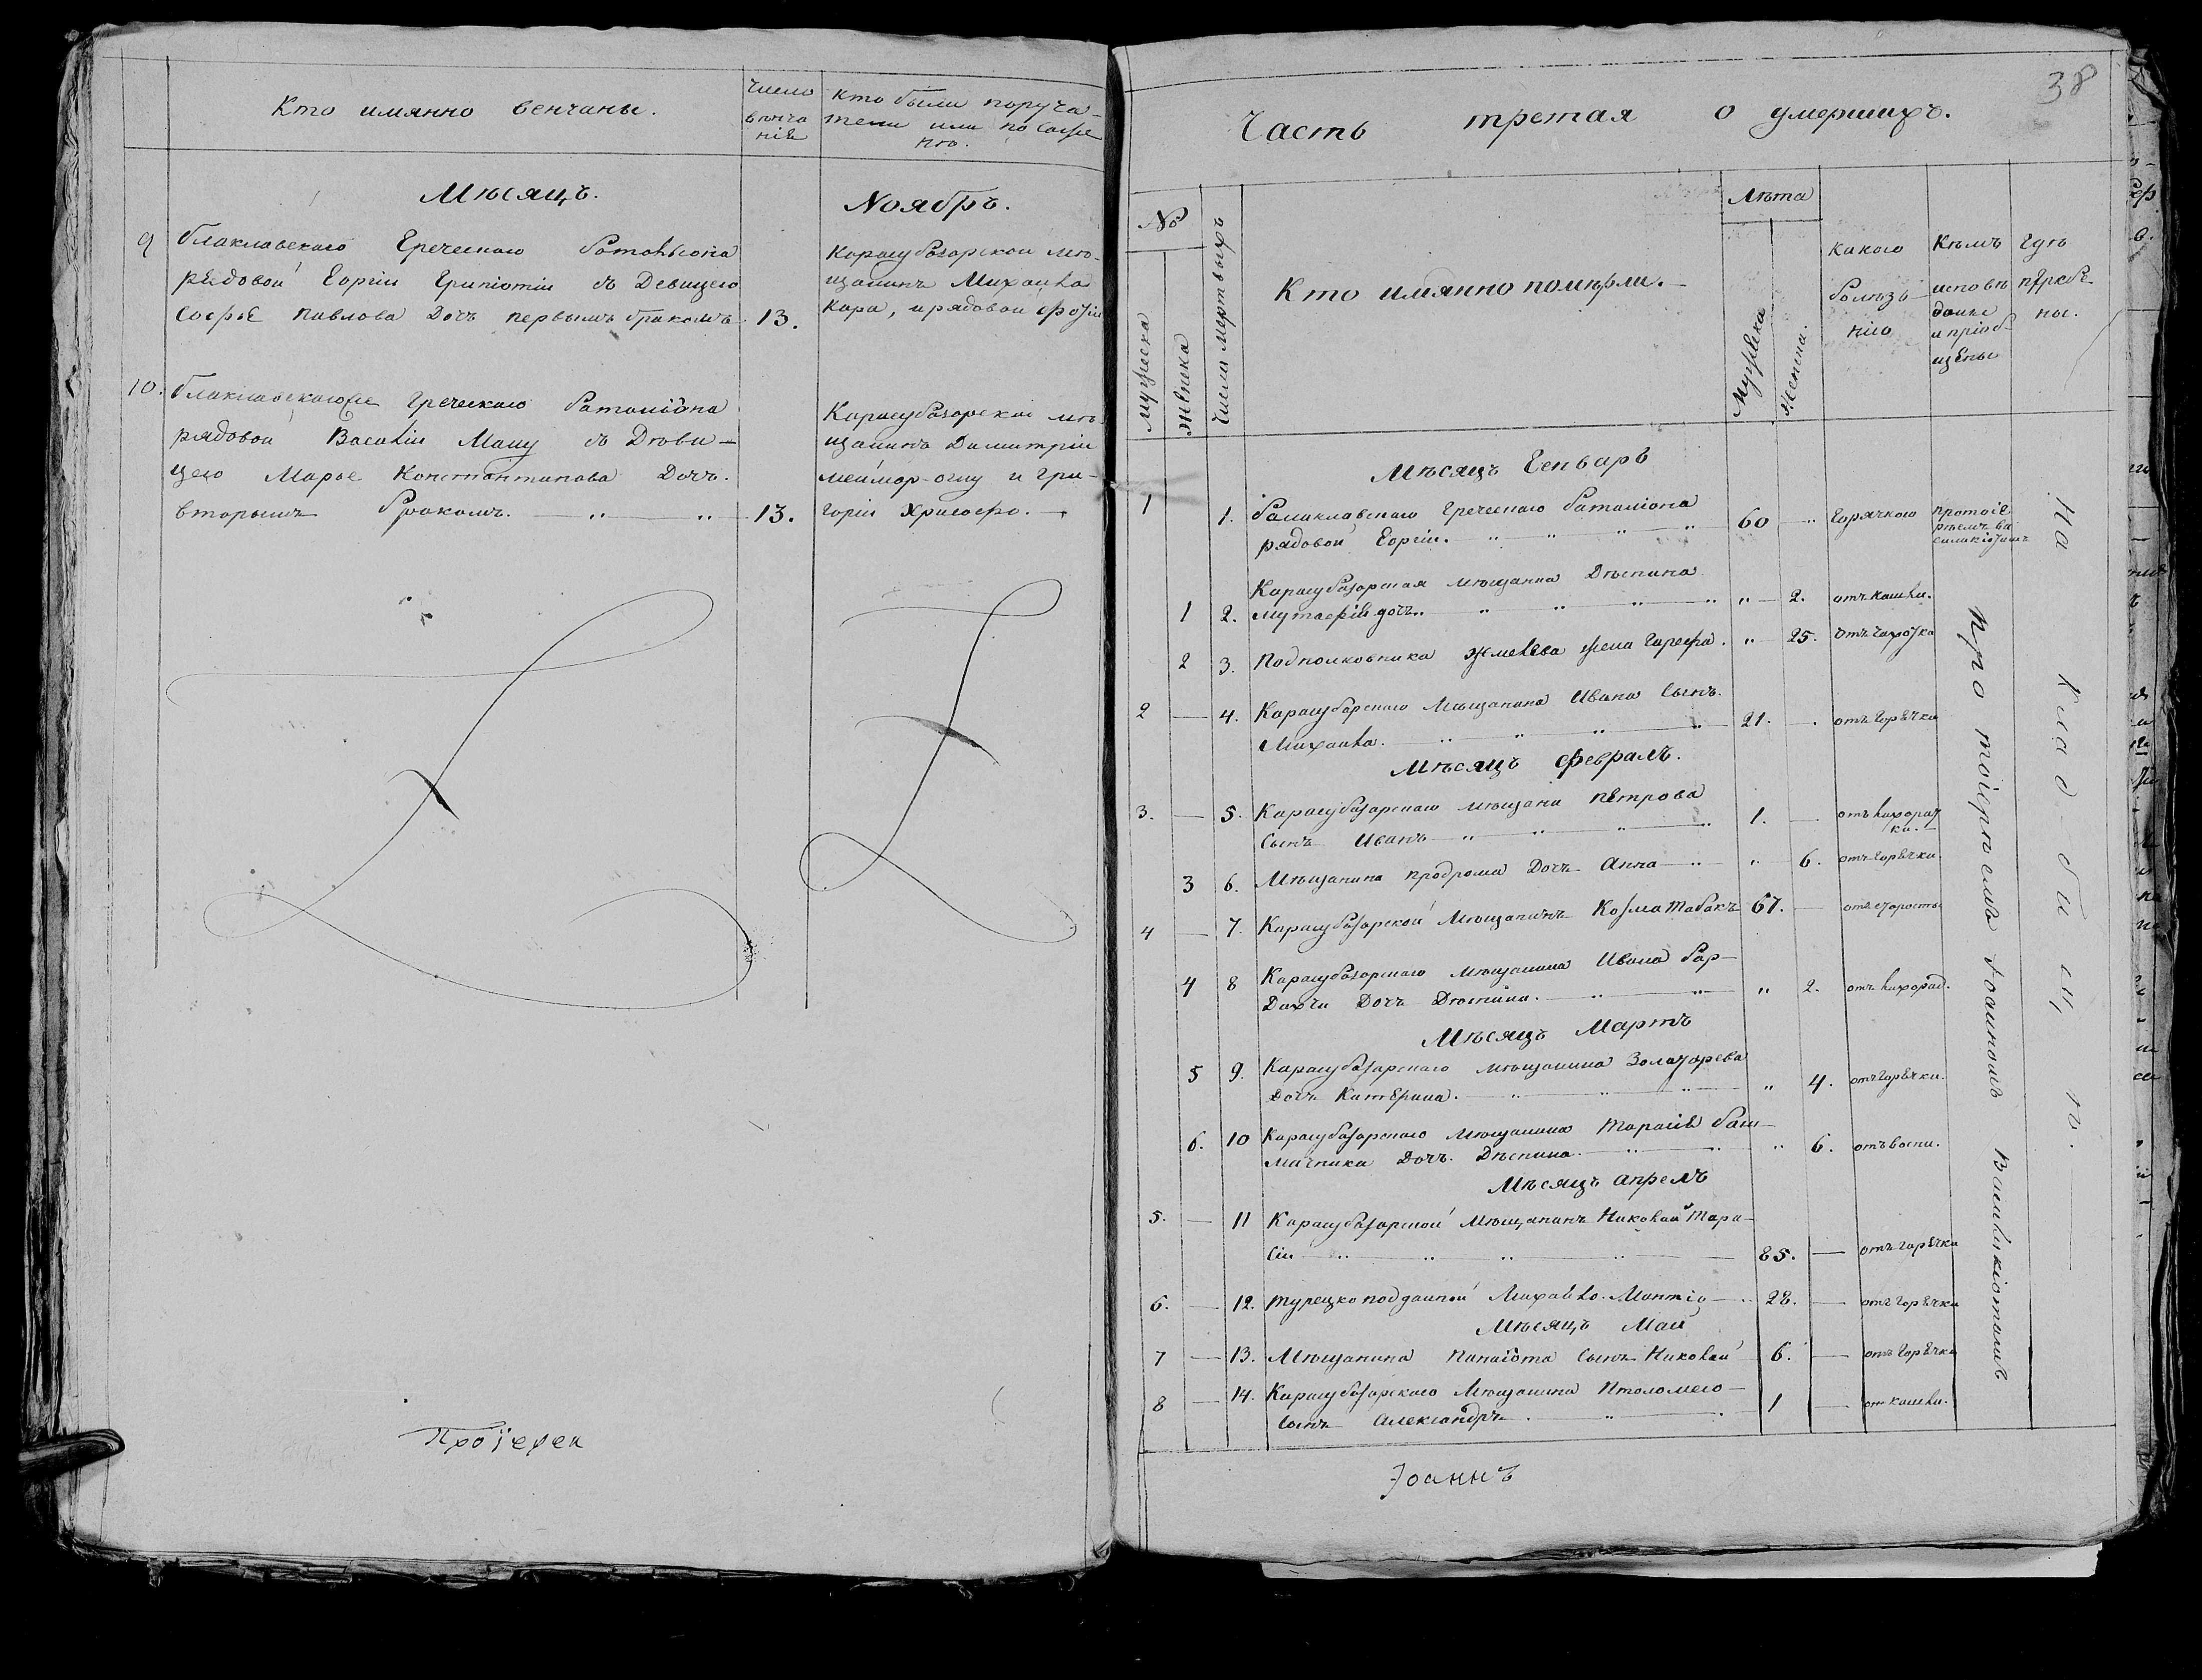 Кто имянно венчаны.
Число венчанiе
Кто были поручатели или по
Мѣсяцъ. Ноябръ.
9 Блаклавскаго Греческаго Баталiона
рядовой Еоргiи съ Девицею
Софье Павлова Дочъ первымъ бракомъ 13.
Карасубазарской мѣ-
щанинъ Михаила
Кара, и рядовой
10. Блаклавскаго Греческаго Баталiона
рядовой Василiи Мацу съ Дѣви-
цею Марье Константинова Дочъ.
вторымъ бракомъ. 13.
Карасубазарской мѣ-
щанинъ Димитрiи
и Гри-
горiи Христофо.
Протоiереи
38
Часть третая о умершихъ.
№
мужеска
женска
Число мертвыхъ
Кто имянно помѣрли.
Лѣта
Мужеска
Женска.
Какою болѣзнiю
Кѣмъ исповеданы и прiобщены
Гдѣ погребены.
Мѣсяцъ Генваръ
1 1. Балаклавскаго Греческаго Баталiона
рядовой Еоргiи. 60 Горячкою Протоiерѣемъ
Карасубазарская мѣщанка Дѣспина
1 2. дочъ. 2. отъ кашли.
2 3. Подполковника жена 25. отъ
2 4. Карасубарскаго Мѣщанина Ивана Сынъ
Михаила. 21. отъ Горѣчки
Мѣсяцъ Февралъ.
3. 5. Карасубазарскаго мѣщани Пѣтрова
Сынъ Иванъ 1. отъ лихорадки.
3 6. Мѣщанина Продрома Дочъ Анна 6. отъ Горѣчки.
4 7. Карасубазарской Мѣщанинъ Козма Табакъ 67. отъ старости
4 8 Карасубазарскаго Мѣщанина Ивана Бар-
Дочъ 2. отъ лихорад.
Мѣсяцъ Мартъ
5 9. Карасубазарскаго мѣщанина Золатарева
Дочъ Катѣрина. 4. отъ Горѣчки.
6. 10 Карасубазарскаго Мѣщанина Тарасiя баш-
мачника Дочъ Дѣспина. 6. отъ воспи.
Мѣсяцъ Апрелъ
5. 11 Карасубазарской Мѣщанинъ Николай Тара-
сiи 85. отъ горѣчки
6. 12. Турецкоподданной Михаило 28. отъ Горѣчки
Мѣсяцъ Май
7 13. Мѣщанина Панаiота Сынъ Николай 6. отъ Горѣчки
8 14. Карасубазарскаго Мѣщанина Птоломего
Сынъ Александръ. 1 от кашли.
Протоiерѣемъ Iоанномъ Василикiотимъ
На Кладбищѣ.
Iоаннъ